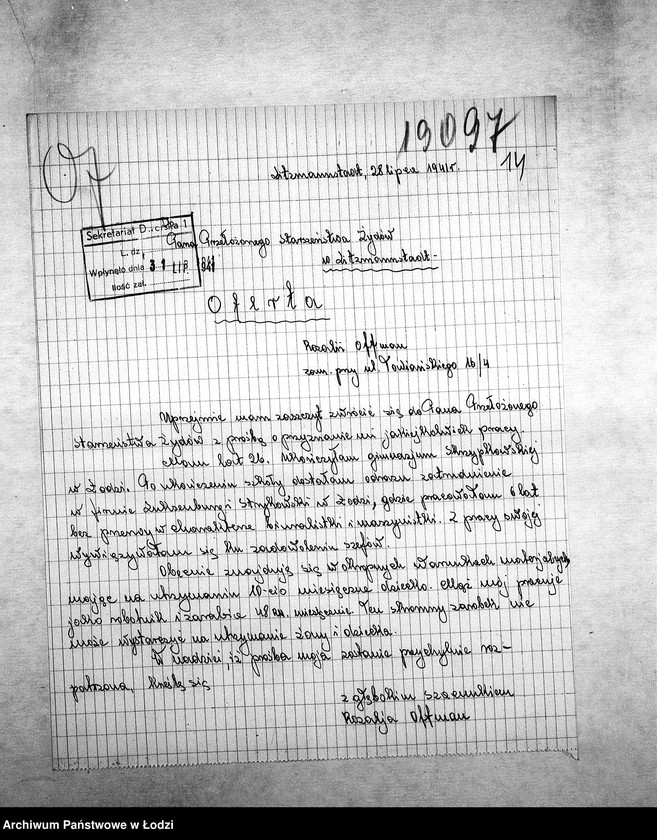 19097
14
07
Litzmannstadt, 28 lipca 1941 r.
Sekretariat
L. dz.
Wpłynęło dnia 31 LIP. 1941
Ilość zał.
Do
Pana Przełożonego Starszeństwa Żydów
w Litzmannstadt-
Oferta
Rozalii Offman
zam. przy ul. Towiańskiego 16/4
Uprzejmie mam zaszczyt zwrócić się do Pana Przełożonego
Starszeństwa Żydów z prośbą o przyznanie mi jakiejkolwiek pracy.
Mam lat 26. Ukończyłam gimnazjum Skrzypkowskiej
w Łodzi. Po ukończeniu szkoły dostałam odrazu zatrudnienie
w firmie Luksenburg i Strykowski w Łodzi, gdzie pracowałam 6 lat
bez przerwy w charakterze biuralistki i maszynistki. Z pracy swojej
wywiązywałam się ku zadowoleniu szefów.
Obecnie znajduję się w okropnych warunkach materjalnych
mając na utrzymaniu 10-cio miesięczne dziecko. Mąż mój pracuje
jako robotnik i zarabia 48 mk. miesięcznie. Ten skromny zarobek nie
może wystarczyć na utrzymanie żony i dziecka.
W nadziei, iż prośba moja zostanie przychylnie roz-
patrzona, kreślę się
z głębokim szacunkiem
Rozalja Offman
Archiwum Państwowe w Łodzi